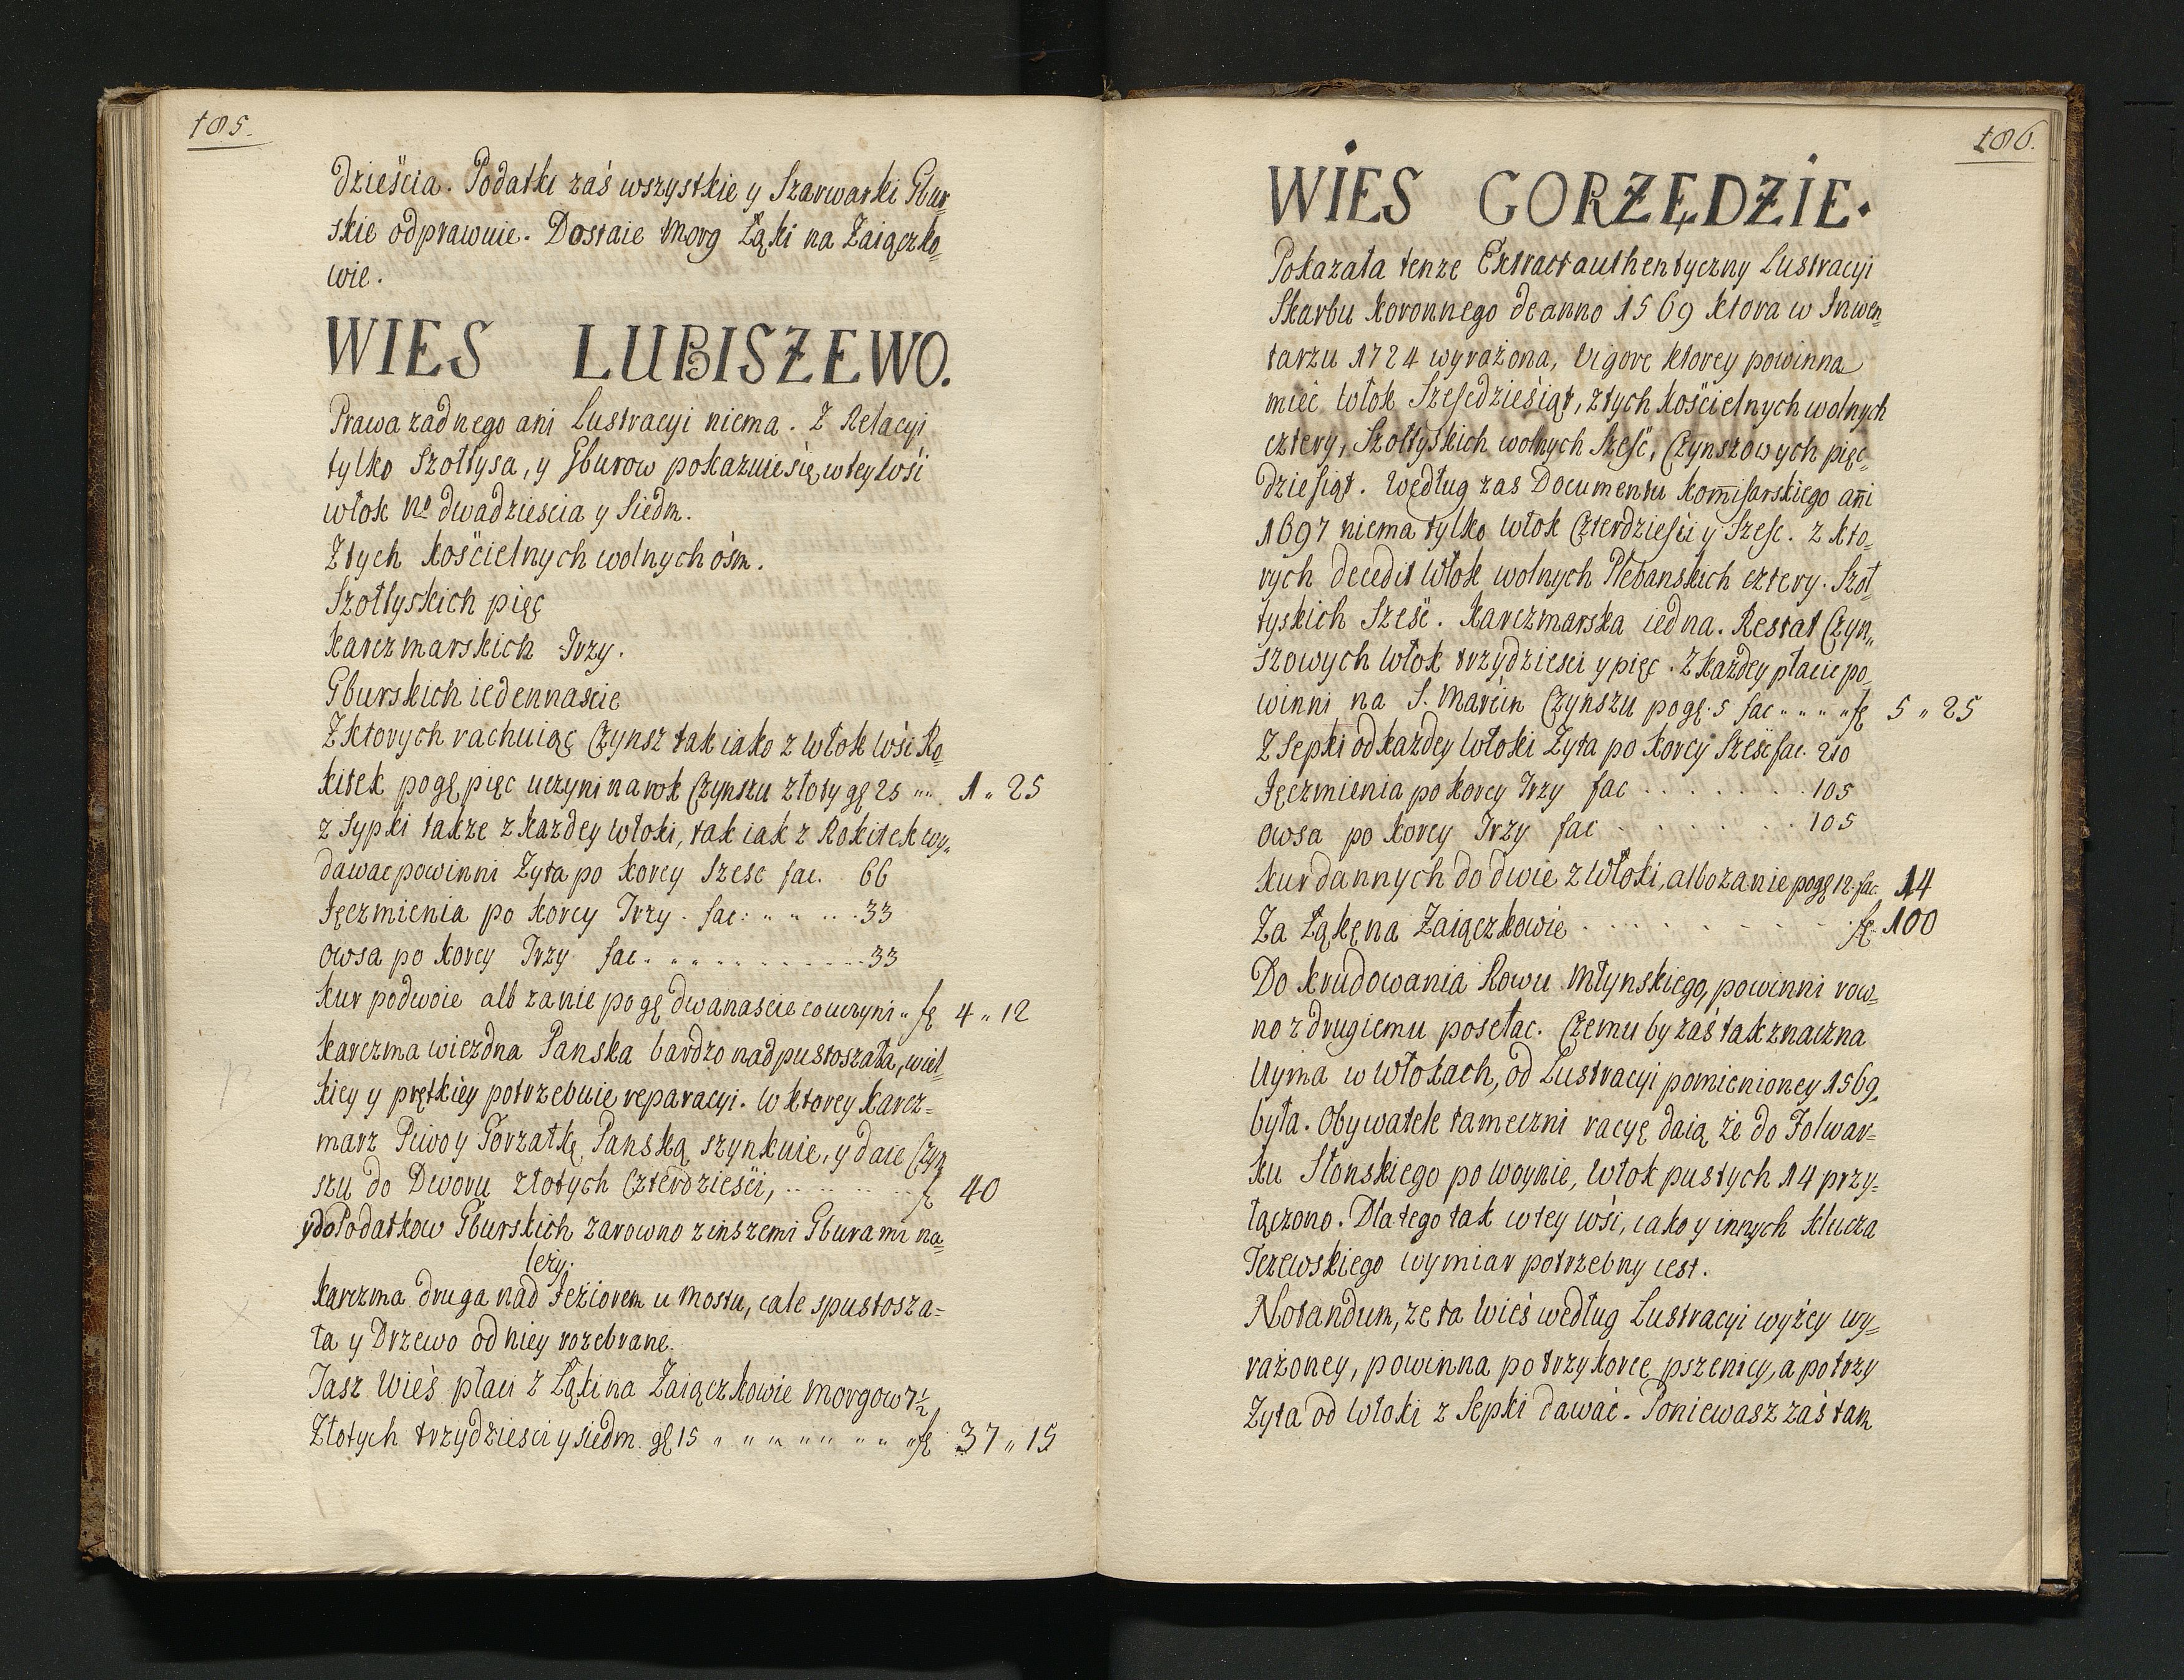 185.
dzieścia. Podatki zaś wszystkie y Szarwarki Gbur-
skie odprawuie. Dostaie Morg Łąki na Zaiączko-
wie.
WIES LUBISZEWO.
Prawa zadnego ani Lustracyi niema. Z Relacyi
tylko Szołtysa, y Gburow pokazuie się w tey Wśi
włok No dwadziescia y Siedm.
Z tych Kościelnych wolnych ośm.
Szołtyskich pięć
Karczmarskich Trzy.
Gburskich iedennascie
Z ktorych rachuiąc Czynsz tak iako z włok Wśi Ro-
kitek po gę pięc uczyni na rok Czynszu złoty gę 25 1 " 25
z Sypki także z każdey włoki, tak iak z Rokitek wy-
dawac powinni Zyta po Korcy Szesc fac. 66
Jęczmienia po Korcy Trzy. fac: 33
Owsa po Korcy Trzy fac. 33
Kur po dwoie alb za nie po gę dwanascie co uczyni fę 4 " 12
Karczma wiezdna Panska bardzo nadpustoszała, wiel-
kiey y prętkiey potrzebuie reparacyi. W ktorey Karcz=
marz Piwo y Gorzałkę Panską szynkuie, y daie Czyn
szu do Dworu złotych Czterdzieści, fę 40
y do Podatkow Gburskich zarowno z inszemi Gburami na-
leży.
Karczma druga nad Jeziorem u Mostu, cale spustosza=
ła y Drzewo od niey rozebrane.
Tasz Wieś płaci z Łąki na Zaiączkowie Morgow 7½
Złotych trzydziesci y siedm. gę 15 fę 37 " 15
186.
WIES GORZĘDZIE.
Pokazała tenze Extract authentyczny Lustracyi
Skarbu Koronnego de anno 1569 Ktora w Inwen-
tarzu 1724 wyrażona, Vigore Ktorey powinna
mieć Włok Szesćdziesiąt, z tych Kościelnych wolnych
cztery, Szołtyskich wolnych Sześć, Czynszowych pięc-
dziesiąt. Według zas Documentu Kom̃isarskiego añi
1697 niema tylko Włok Czterdziesci y Szesc. z kto-
rych decedit Włok wolnych Plebanskich cztery. Szoł-
tyskich Sześć. Karczmarska iedna. Restat Czyn„
szowych Włok trzydziesci y pięc. Z każdey płacic po-
winni na S. Marcin Czynszu po gę. 5 fac fę 5 " 25
Z Sepki od każdey Włoki Zyta po Korcy Sześć fac. 210
Jęczmienia po Korcy Trzy fac 105
Owsa po Korcy Trzy fac 105
Kur dannych do dwie z Włoki, albo za nie po gę 12. fac. 14
Za Łąkę na Zaiączkowie fę 100
Do Krudowania Rowu Młynskiego, powinni row-
no z drugiemu posełac. Czemu by zaś tak znaczna
Uyma w Włokach, od Lustracyi pomienioney 1569
była. Obywatele tameczni racyę daią że do Folwar=
ku Słonskiego po woynie, Włok pustych 14 przy-
łączono. Dla tego tak w tey wśi, iako y innych Klucza
Tczewskiego wymiar potrzebny iest.
Notandum, ze ta Wieś według Lustracyi wyżey wy-
rażoney, powinna po trzy korce pszenicy, a po trzy
Zyta od Włoki z Sepki dawać. Poniewasz zaś tam